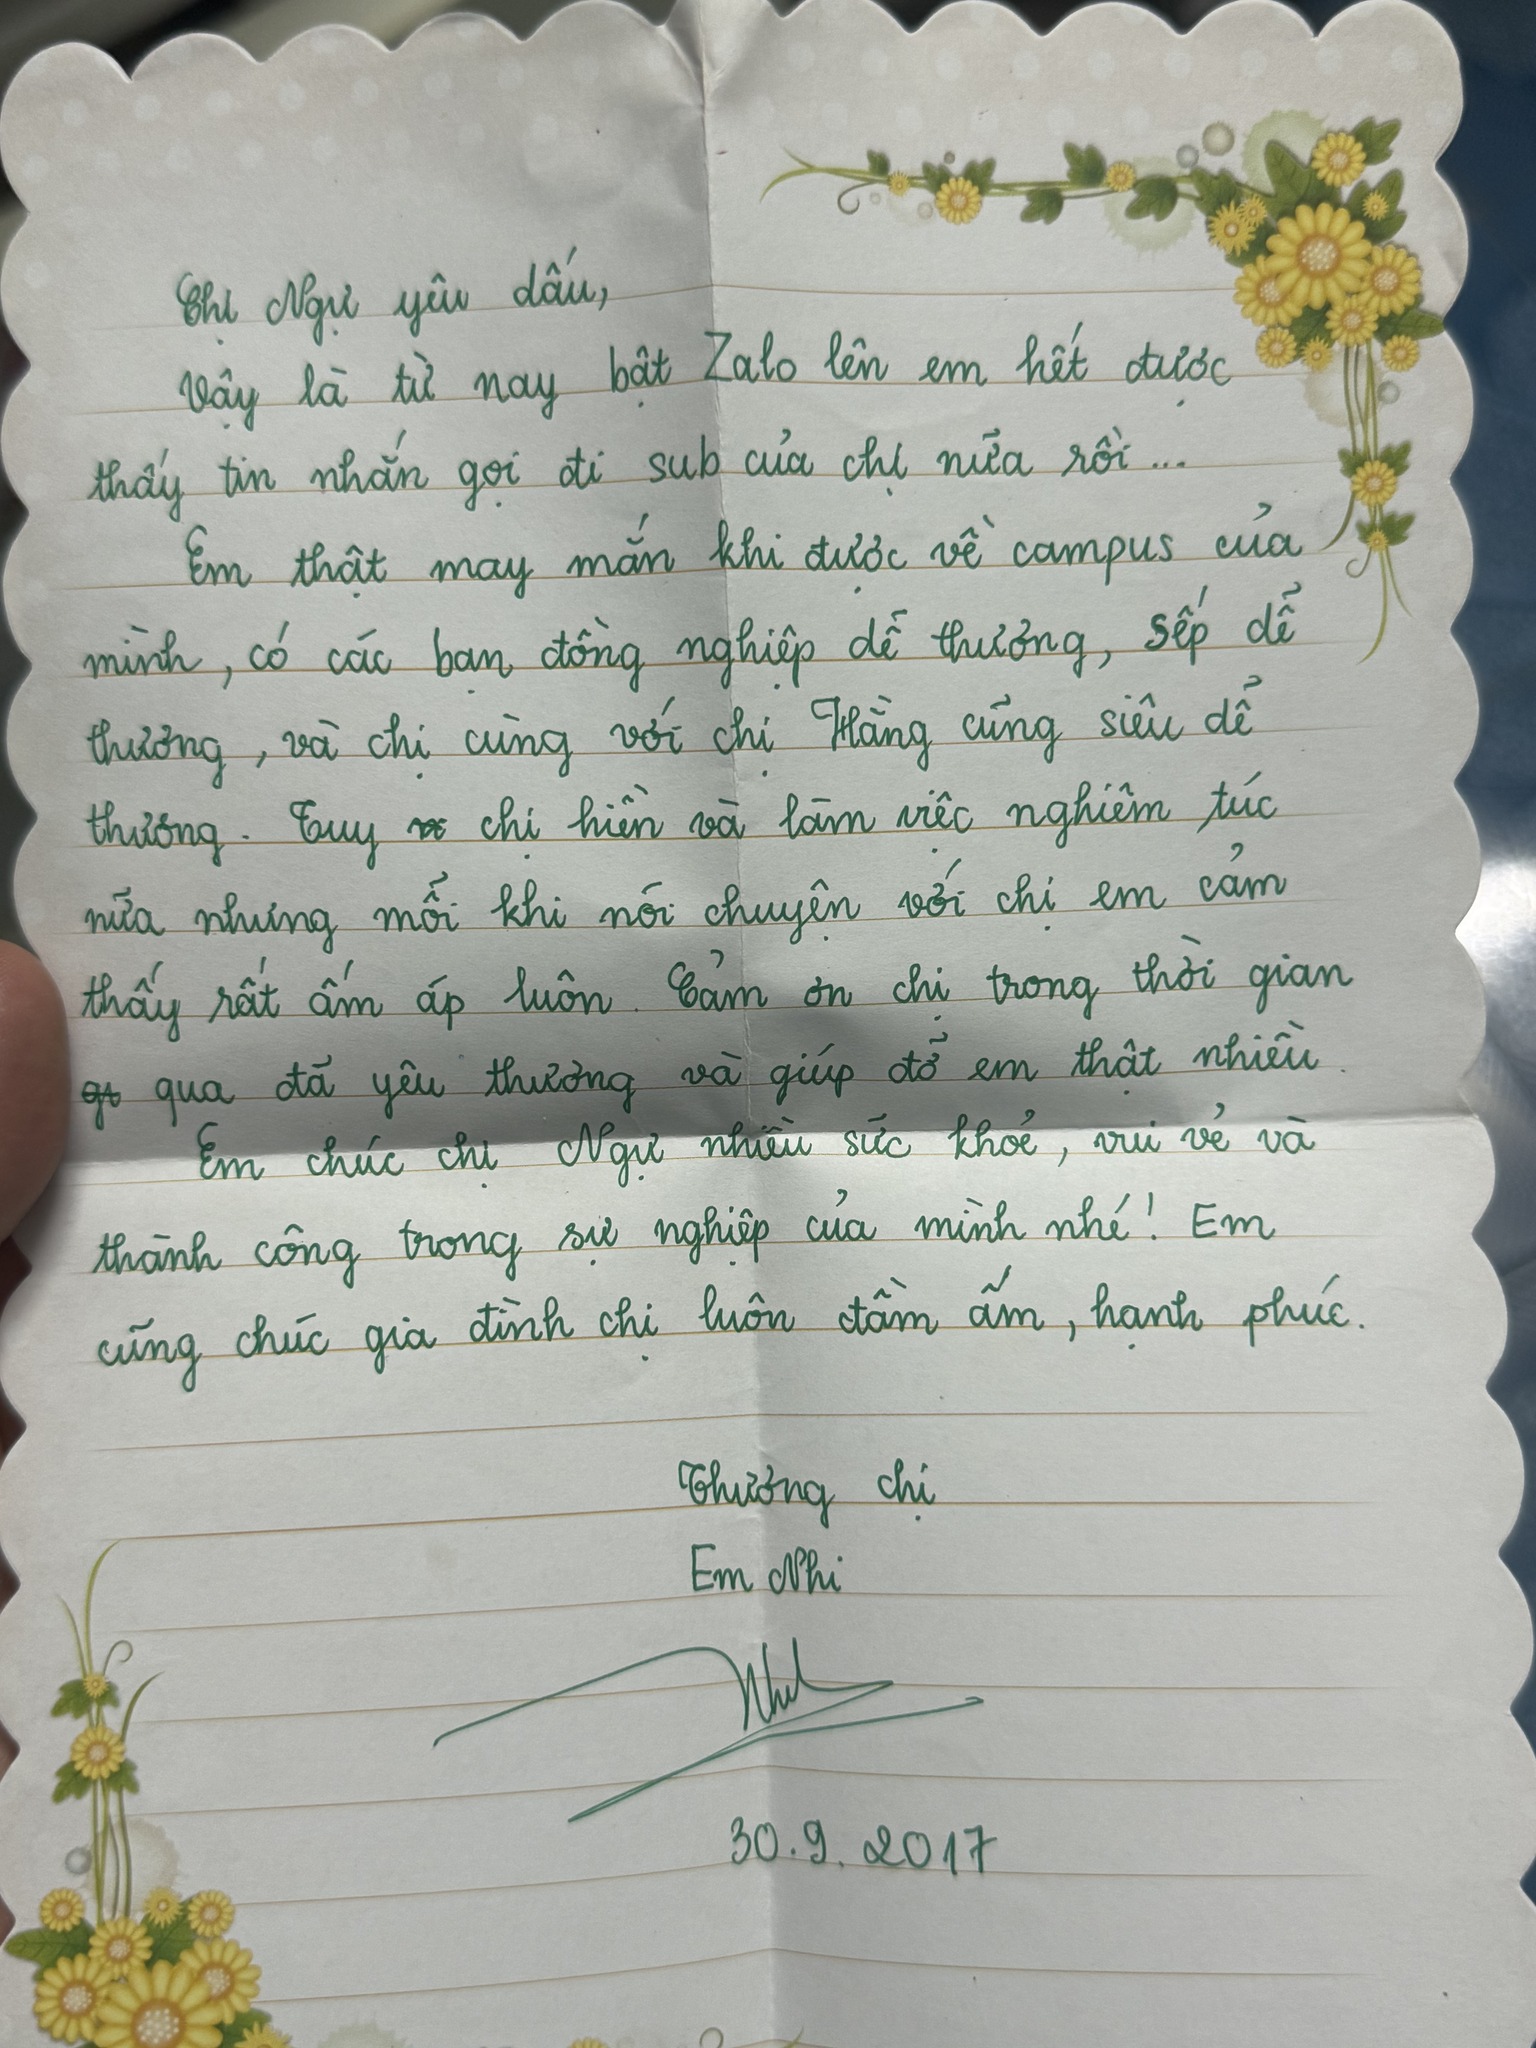 Chị Ngự yêu dấu,
Vậy là từ nay bật Zalo lên em hết được
thấy tin nhắn gọi đi sub của chị nữa rồi...
Em thật may mắn khi được về campus của
mình, có các bạn đồng nghiệp dễ thương, sếp dễ
thương, và chị cùng với chị Hằng cũng siêu dễ
thương. Tuy chị hiền và làm việc nghiêm túc
nữa nhưng mỗi khi nói chuyện với chị em cảm
thấy rất ấm áp luôn. Cảm ơn chị trong thời gian
qua đã yêu thương và giúp đỡ em thật nhiều.
Em chúc chị Ngự nhiều sức khoẻ, vui vẻ và
thành công trong sự nghiệp của mình nhé! Em
cũng chúc gia đình chị luôn đầm ấm, hạnh phúc.
Thương chị
Em Nhi
Nhi
30.9.2017